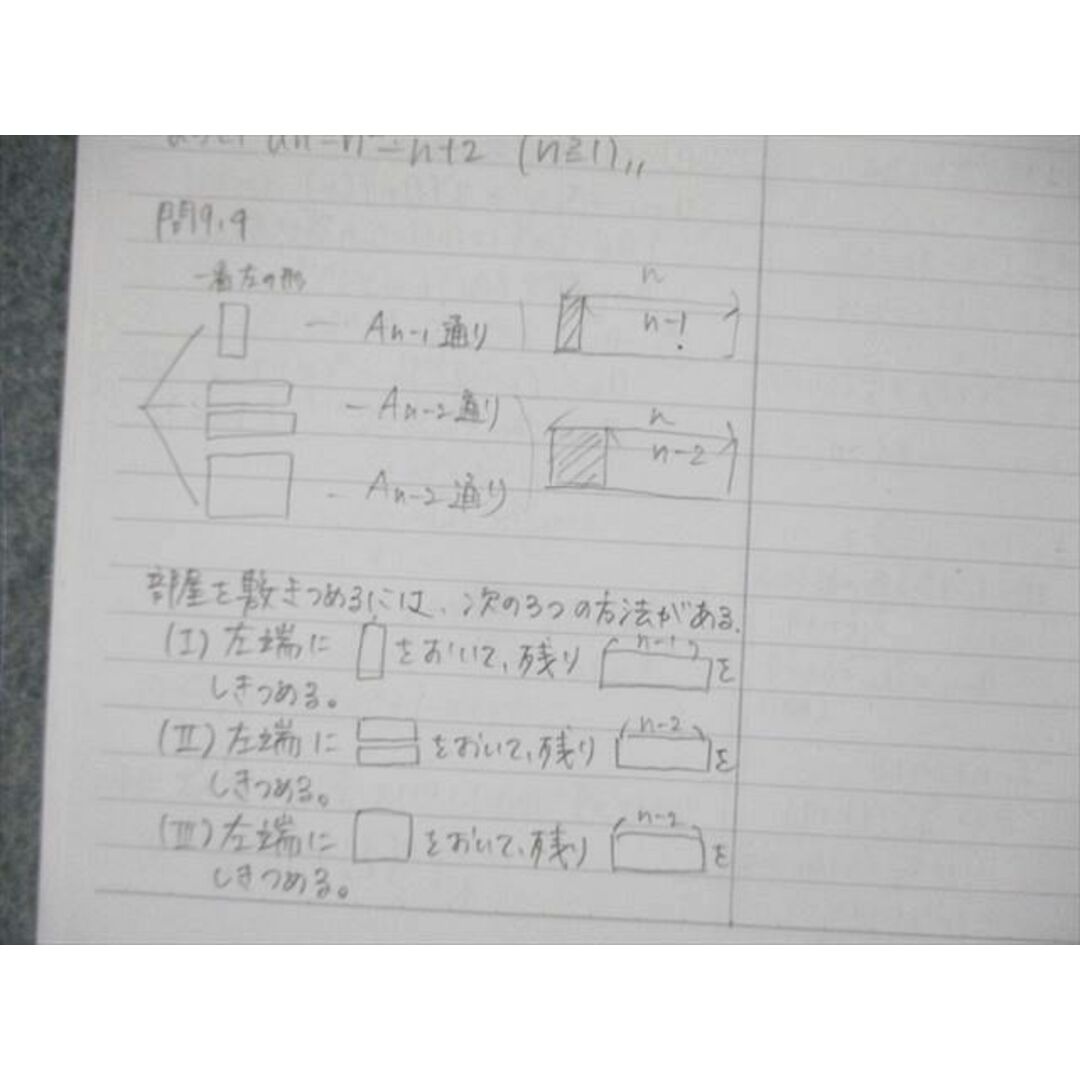 an=n²-n+2 (n≧1),,
問9.9
一番左の形
- An-1通り
n
n-1
- An-2通り
n
n-2
- An-2通り
部屋を敷きつめるには、次の3つの方法がある.
n-1
(I) 左端に をおいて、残り を
しきつめる。
n-2
(II) 左端に をおいて、残り を
しきつめる。
n-2
(III) 左端に をおいて、残り を
しきつめる。